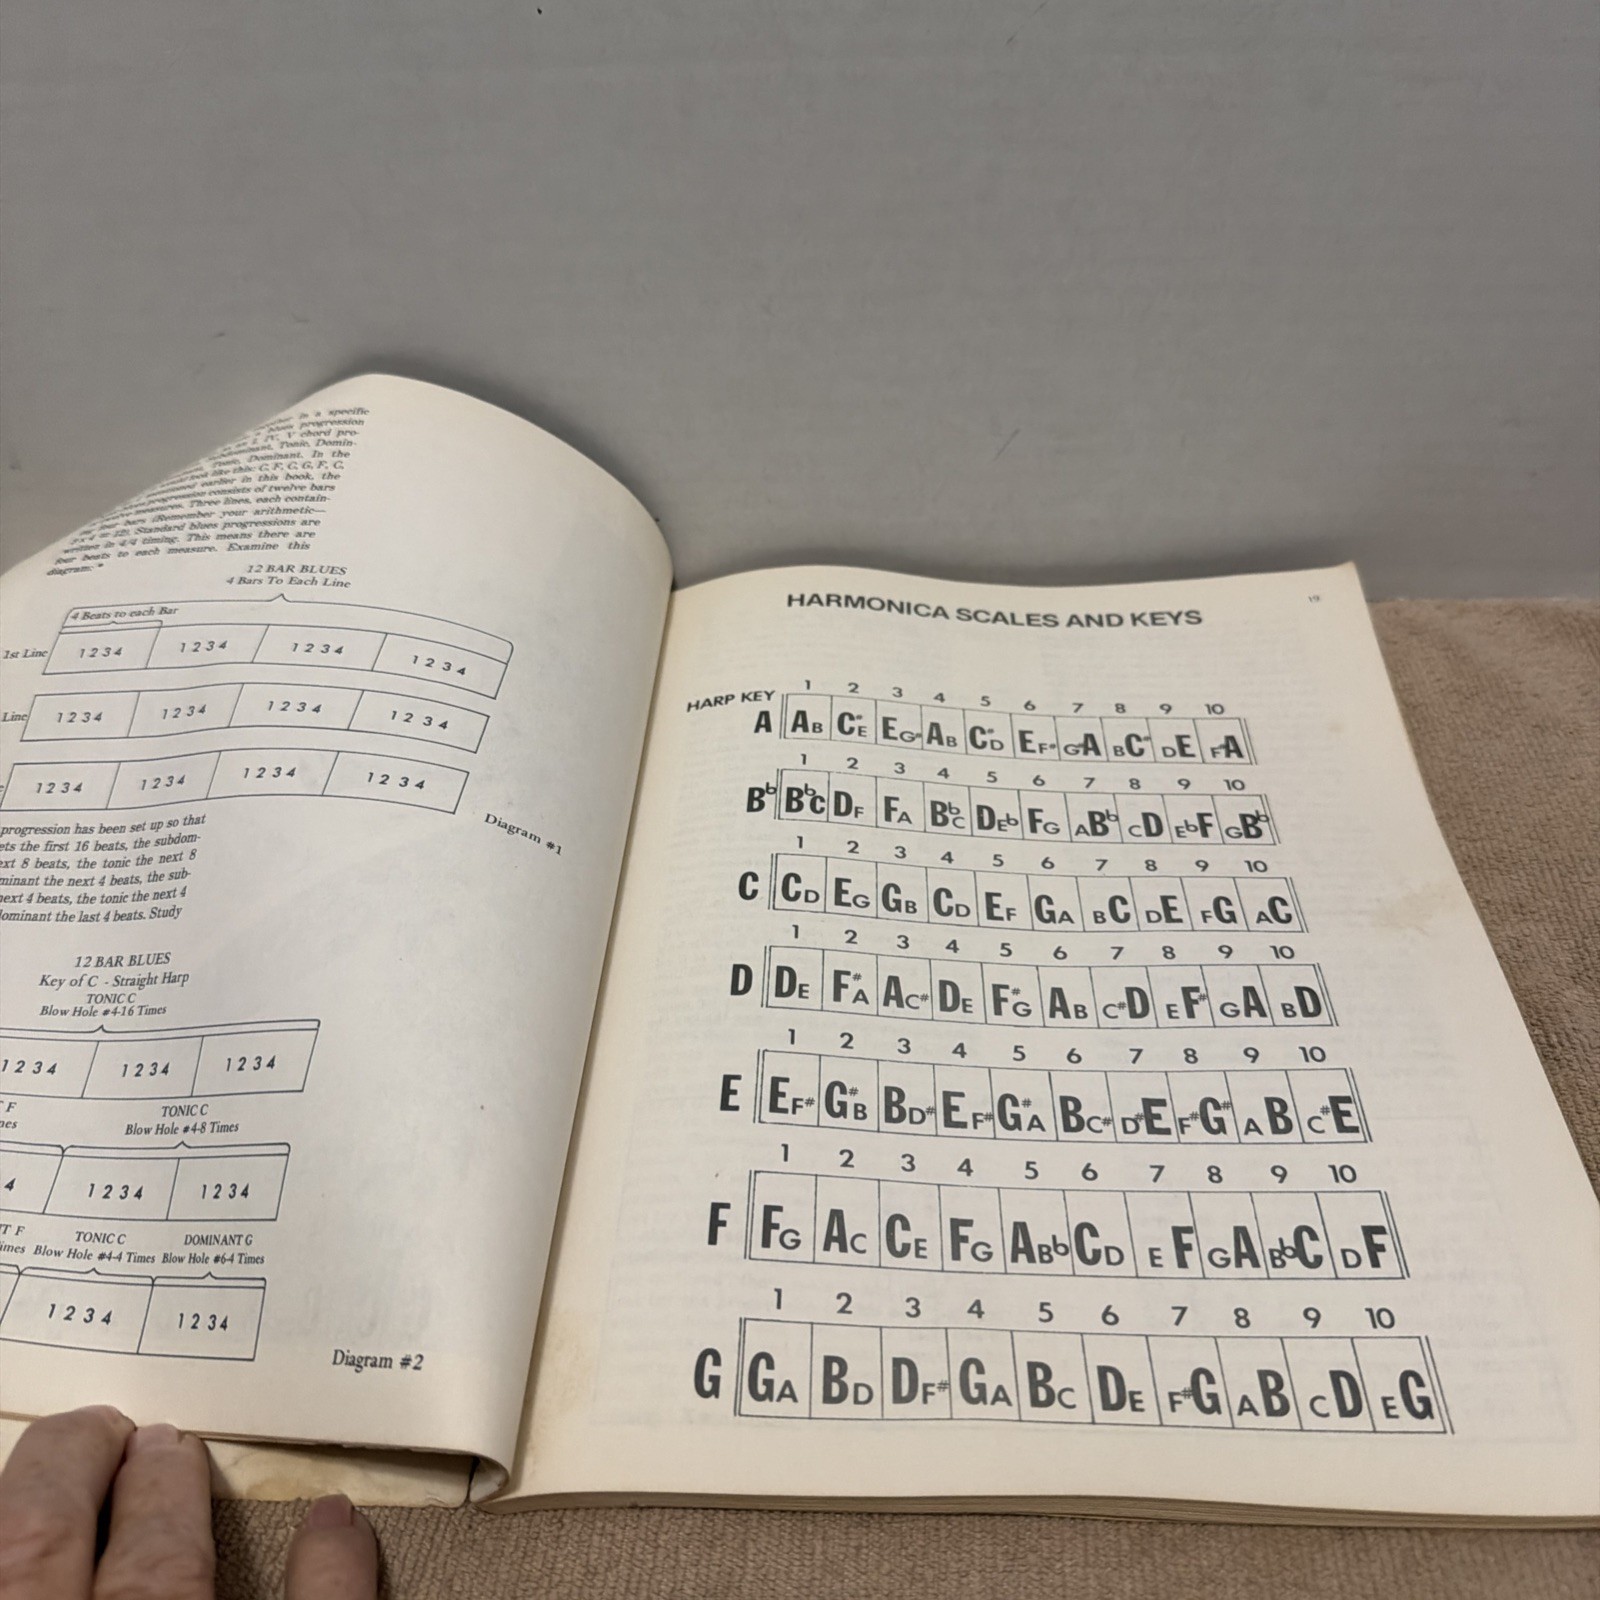 in a specific
blues progression
I, IV, V chord pro-
Tonic, Domin-
Tonic, Dominant. In the
look like this: C, F, C, G, F, C,
mentioned earlier in this book, the
progression consists of twelve bars
measures. Three lines, each contain-
four bars (Remember your arithmetic—
3 x 4 = 12). Standard blues progressions are
written in 4/4 timing. This means there are
four beats to each measure. Examine this
diagram: *
12 BAR BLUES
4 Bars To Each Line
4 Beats to each Bar
1st Line 1 2 3 4 1 2 3 4 1 2 3 4 1 2 3 4
Line 1 2 3 4 1 2 3 4 1 2 3 4 1 2 3 4
1 2 3 4 1 2 3 4 1 2 3 4 1 2 3 4
Diagram #1
progression has been set up so that
ets the first 16 beats, the subdom-
ext 8 beats, the tonic the next 8
minant the next 4 beats, the sub-
next 4 beats, the tonic the next 4
dominant the last 4 beats. Study
12 BAR BLUES
Key of C - Straight Harp
TONIC C
Blow Hole #4-16 Times
1 2 3 4 1 2 3 4 1 2 3 4
F TONIC C
mes Blow Hole #4-8 Times
4 1 2 3 4 1 2 3 4
T F TONIC C DOMINANT G
imes Blow Hole #4-4 Times Blow Hole #6-4 Times
1 2 3 4 1 2 3 4
Diagram #2
19
HARMONICA SCALES AND KEYS
HARP KEY 1 2 3 4 5 6 7 8 9 10
A AB C#E EG# AB C#D EF# G#A BC# DE F#A
1 2 3 4 5 6 7 8 9 10
Bb BbC DF FA BbC DEb FG ABb CD EbF GBb
1 2 3 4 5 6 7 8 9 10
C CD EG GB CD EF GA BC DE FG AC
1 2 3 4 5 6 7 8 9 10
D DE F#A AC# DE F#G AB C#D EF# GA BD
1 2 3 4 5 6 7 8 9 10
E EF# G#B BD# EF# G#A BC# D#E F#G# AB C#E
1 2 3 4 5 6 7 8 9 10
F FG AC CE FG ABb CD EF GA BbC DF
1 2 3 4 5 6 7 8 9 10
G GA BD DF# GA BC DE F#G AB CD EG